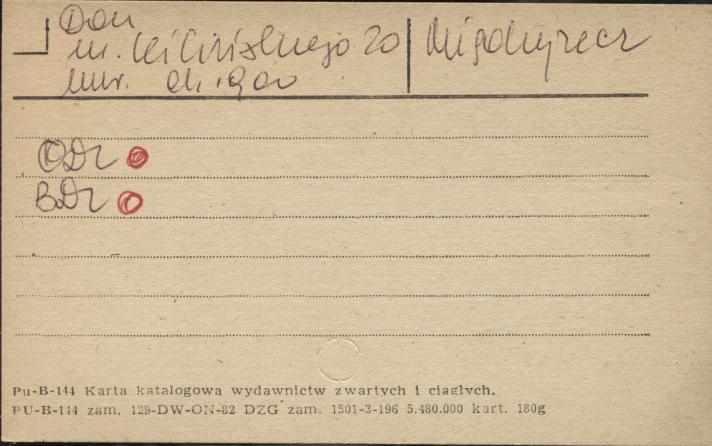 Dom
ul. Kilińskiego 20 Międzyrzecz
mur. ok. 1900
ODZ
BDZ
Pu-B-144 Karta katalogowa wydawnictw zwartych i ciągłych.
PU-B-144 zam. 129-DW-ON-82 DZG zam. 1501-3-196 5.480.000 kart. 180g